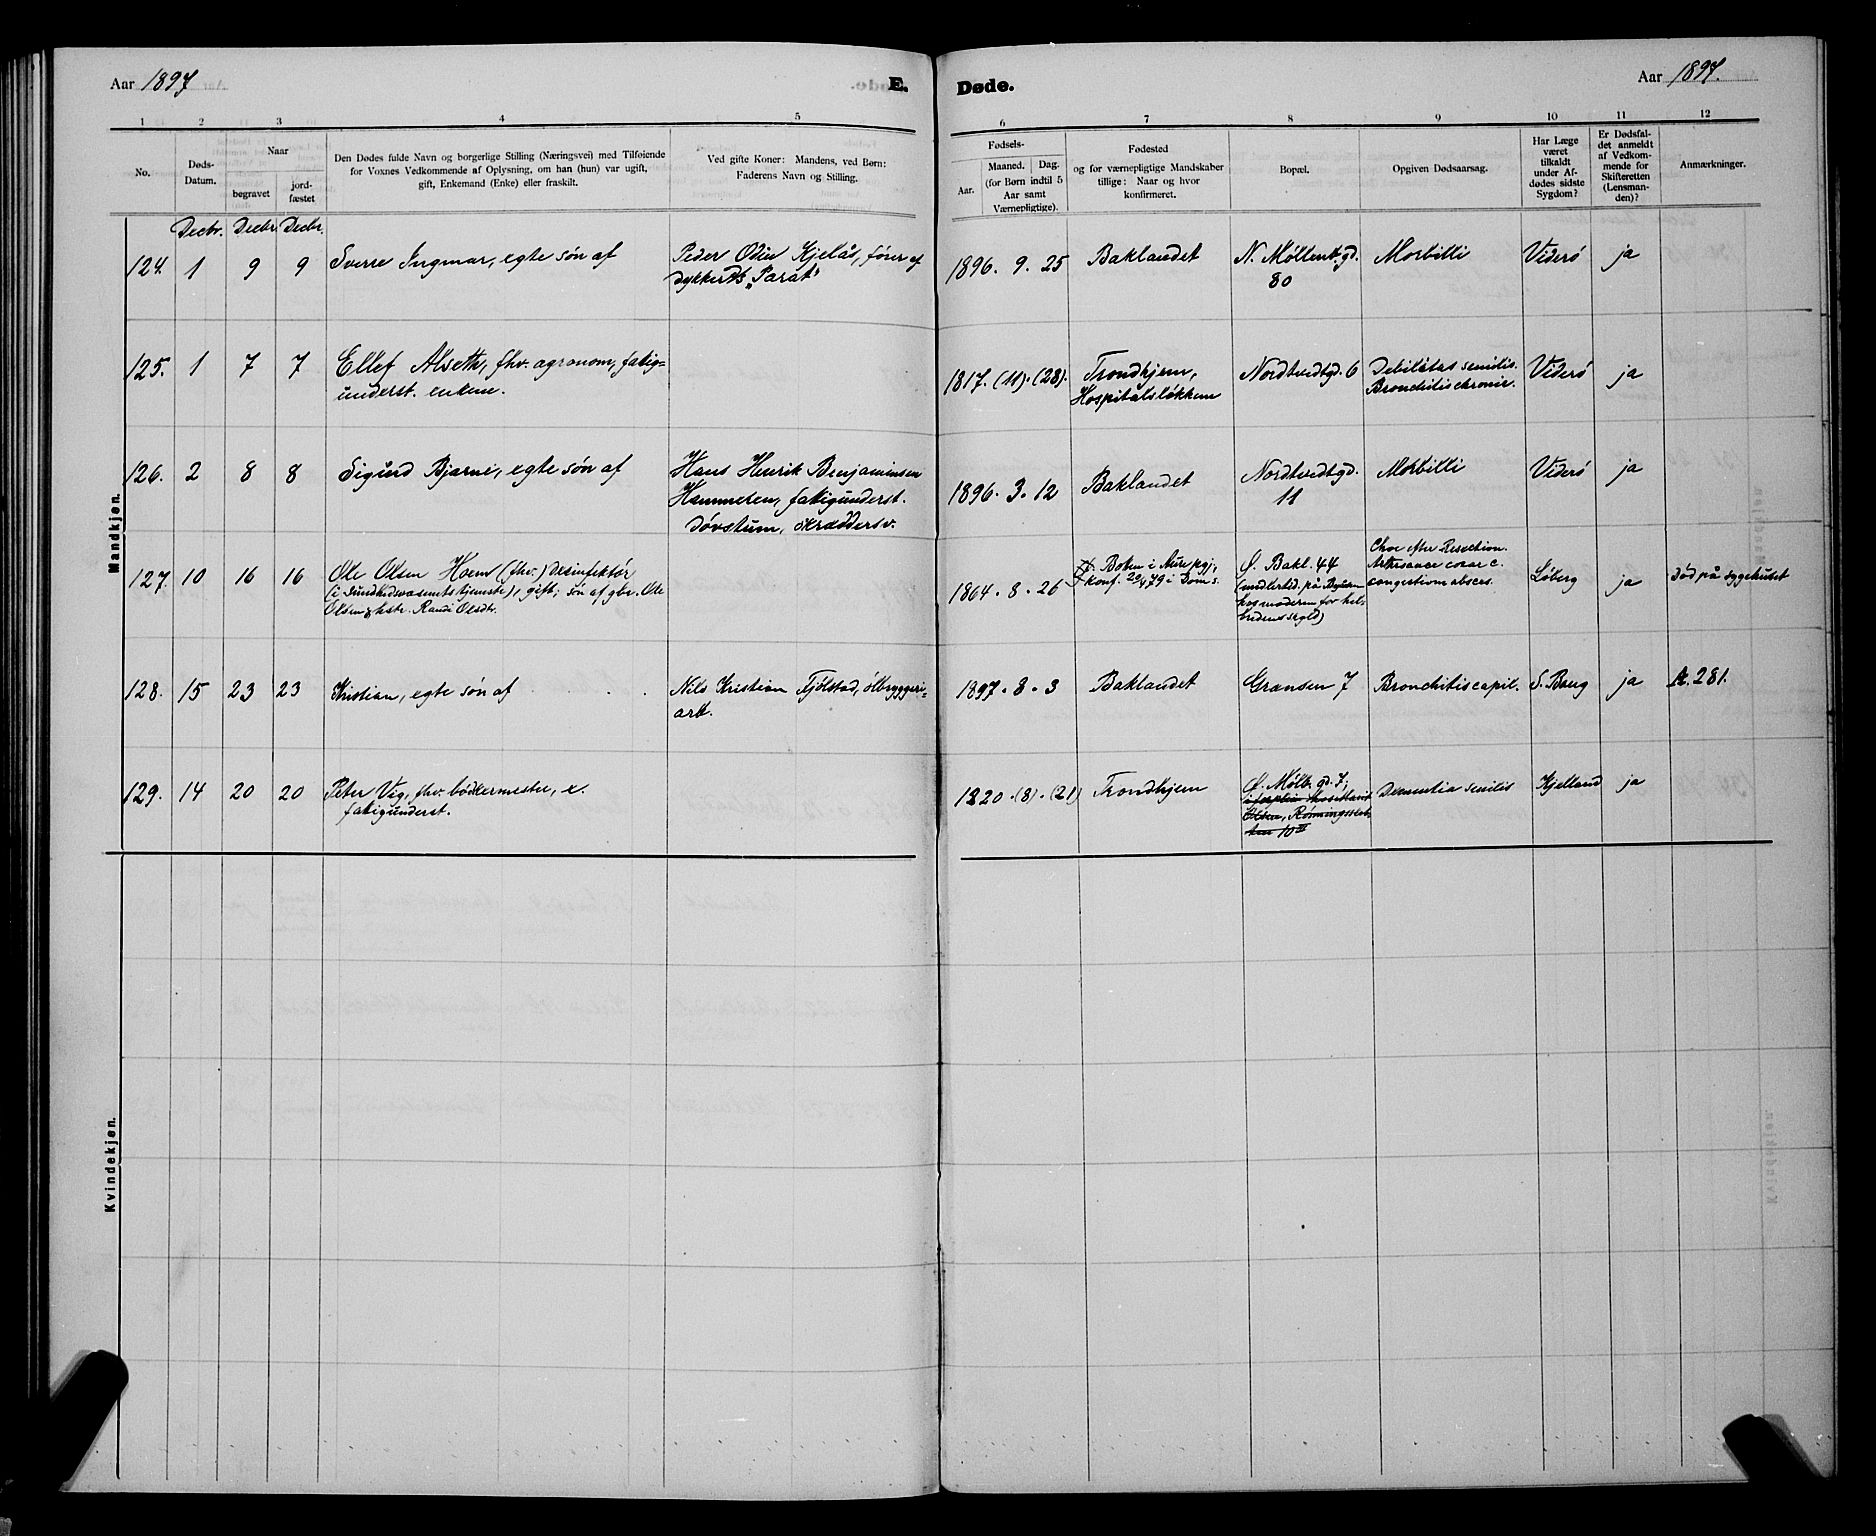 Aar 1897
E.
Døde.
Aar 1897.
1 2 3 4 5 6 7 8 9 10 11 12
No.
Døds-
Datum.
Naar
begravet
jord-
fæstet
Den Dødes fulde Navn og borgerlige Stilling (Næringsvei) med Tilføiende
for Voxnes Vedkommende af Oplysning, om han (hun) var ugift,
gift, Enkemand (Enke) eller fraskilt.
Ved gifte Koner: Mandens, ved Børn:
Faderens Navn og Stilling.
Fødsels-
Aar.
Maaned. Dag.
(for Børn indtil 5
Aar samt
Værnepligtige).
Fødested
og for værnepligtige Mandskaber
tillige: Naar og hvor
konfirmeret.
Bopæl.
Opgiven Dødsaarsag.
Har Læge
været
tilkaldt
under Af-
dødes sidste
Sygdom?
Er Dødsfal-
det anmeldt
af Vedkom-
mende for
Skifteretten
(Lensman-
den)?
Anmærkninger.
Mandkjøn.
Decbr. Decbr. Decbr.
124. 1 9 9 Sverre Ingmar, egte søn af
Peder Odin Kjelås, fører af
dykkerdb "Parat"
1896. 9. 25 Baklandet
N. Møllenb.gd.
80
Morbilli Viderö ja
125. 1 7 7 Ellef Alseth, fhv. agronom, fatig-
underst. enkem.
1817. (11). (28).
Trondhjem,
Hospitalsløkken
Nordtvedtgd. 6
Debilitas senilis.
Bronchitis chronic.
Viderö ja
126. 2 8 8 Sigurd Bjarne, egte søn af
Hans Henrik Benjaminsen
Hammeren, fatigunderst.
døvstum, skræddersv.
1896. 3. 12 Baklandet
Nordtvedtgd.
11
Morbilli Viderö ja
127. 10 16 16 Ole Olsen Hoem (fhv.) desinfektör
(i sundhedsvæsenets tjeneste), gift; søn af gbr. Ole
Olsen & hstr. Randi Olsdtr.
1864. 8. 26
i Aure pgj.,
konf. 20/4 79 i Dom s.
Ø. Bakl. 44
(midlertid. på
hos moderen for hel-
bredens skyld)
Choc efter Resection.
coxae c.
congestion absces.
Løberg ja Död på sygehuset
128. 15 23 23 Kristian, egte søn af
Nils Kristian Fjølstad, ølbryggeri-
arb.
1897. 8. 3 Baklandet Grænsen 7 Bronchitis capil. S. Boug ja A. 281.
129. 14 20 20 Peter Vig, fhv. bødkermester, e.
fatigunderst.
1820. (8). (21) Trondhjem
Ø. Mølb. gd. 7;
Olsen, Rønningsslet-
ten 10
Dementia senilis Kjelland ja
Kvindekjøn.